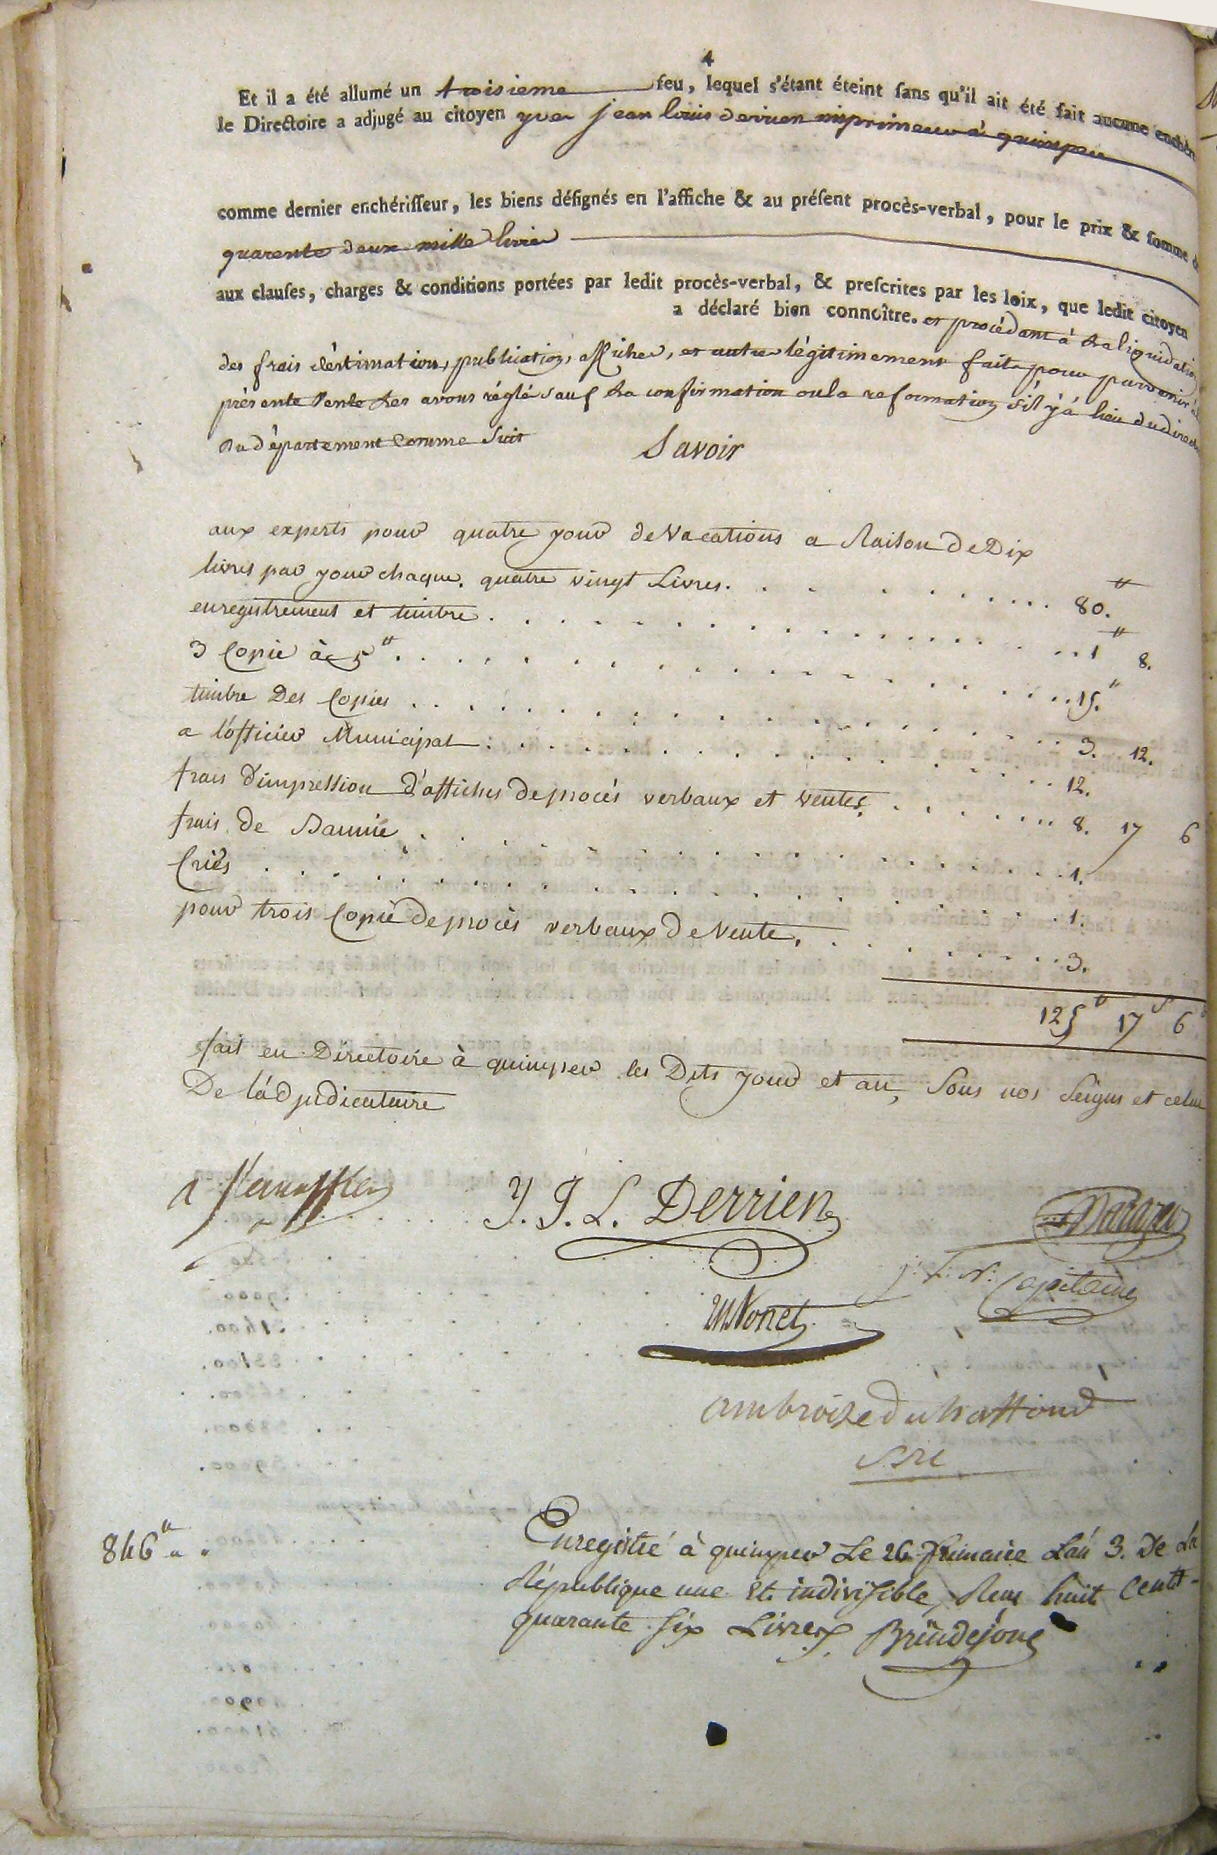 4
Et il a été allumé un troisieme feu, lequel s'étant éteint sans qu'il ait été fait aucune enchère
le Directoire a adjugé au citoyen yves jean louis derrien imprimeur à quimper
comme dernier enchérisseur, les biens désignés en l'affiche & au présent procès-verbal, pour le prix & somme de
quarente deux mille livres
aux clauses, charges & conditions portées par ledit procès-verbal, & prescrites par les loix, que ledit citoyen
a déclaré bien connoître. et procédant à la liquidation
des frais d'estimation, publication, affiches, et autres légitimement faits pour parvenir à la
présente vente les avons réglé sauf la confirmation ou la reformation s'il y a lieu du direct
du département comme suit
Savoir
aux experts pour quatre jour de vacations a Raison de Dix
livres par jour chaque. quatre vingt Livres. 80.^"
enregistrement et timbre 1^" 8.
3 Copie à 5^". 15.^"
timbre Des Copies 3. 12.
a l'officier Municipal 12.
frais d'impression d'affiches de procés verbaux et ventes. 8. 17 6
frais de Bannie 1.
Criés 1.
pour trois Copie de procès verbaux de vente. 3.
125^" 17^s 6
fait en Directoire à quimper les Dits jour et an, Sous nos Seigns et celui
De l'adjudicataire
Y. J. L. Derrien
Capitaine
Ambroise du
Sre
846^"
Enregistré à quimper Le 26 frimaire L'an 3. De La
République une et indivisible, Reçu huit Cents
quarante Six Livres Brindejonc